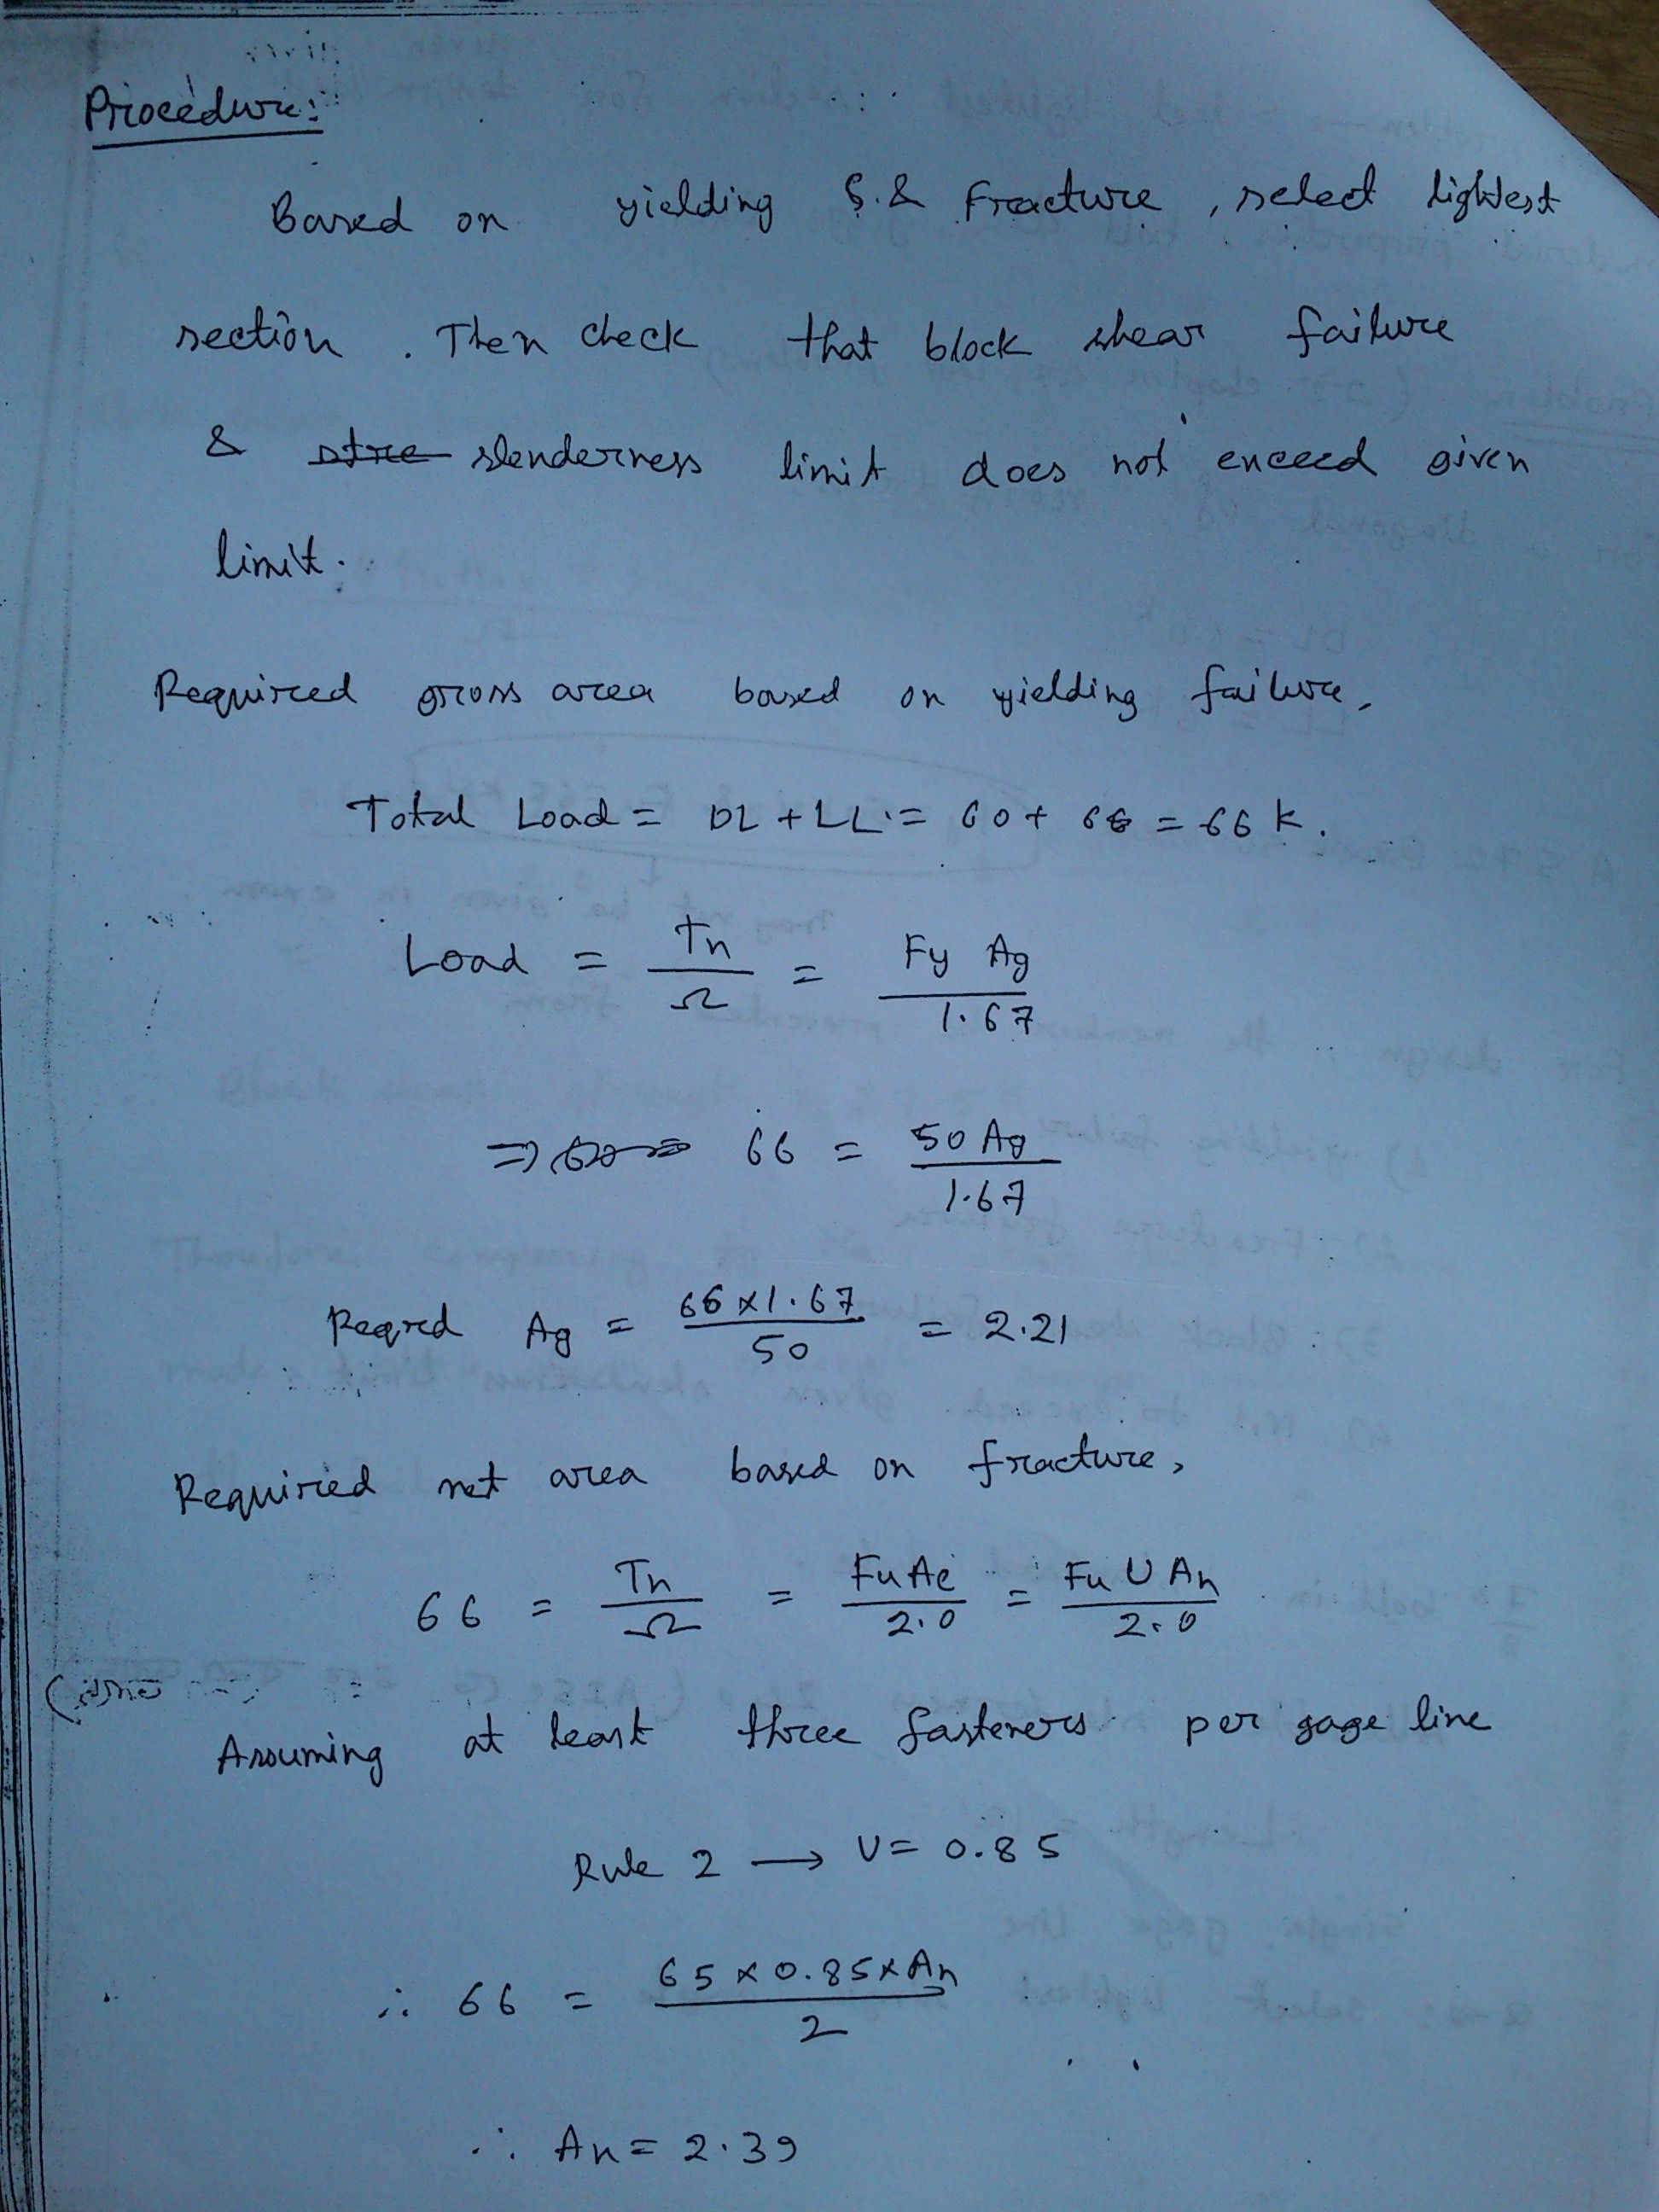 Procedure:
Based on yielding & fracture, select lightest
section. Then check that block shear failure
& slenderness limit does not exceed given
limit.
Required gross area based on yielding failure,
Total Load = DL + LL = 60 + 6 = 66 k.
Load = Tn / Ω = Fy Ag / 1.67
⇒ 66 = 50 Ag / 1.67
Reqrd Ag = 66 × 1.67 / 50 = 2.21
Required net area based on fracture,
66 = Tn / Ω = Fu Ae / 2.0 = Fu U An / 2.0
Assuming at least three fasteners per gage line
Rule 2 → U = 0.85
∴ 66 = 65 × 0.85 × An / 2
∴ An = 2.39